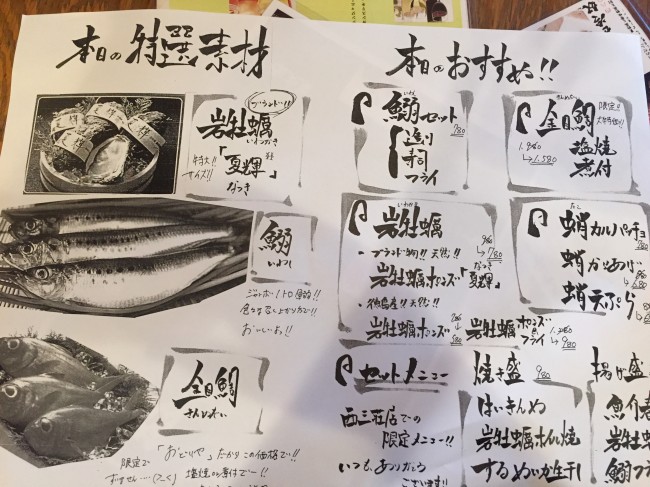 本日の特選素材
ブランド!!
岩牡蠣
いわがき
特大!!
サイズ!!
「夏輝」
なつき
鰯
いわし
ジャンボ!トロ鰯!!
おいしいよ!!
金目鯛
きんめだい
限定で「おどりや」だからこの価格で!!
塩焼 or 煮付で…!!
本日のおすすめ!!
鰯セット
いわし
780
造り
寿司
フライ
きんめだい
金目鯛
限定!!
大特価!!
塩焼
煮付
1.580
いわがき
岩牡蠣
ブランド物!! 天然!!
780
岩牡蠣ポンズ「夏輝」
なつき
徳島産!! 天然!!
岩牡蠣ポンズ
580
岩牡蠣ポンズ
フライ
980
たこ
蛸カルパッチョ
蛸からあげ
蛸天ぷら
セットメニュー
西三荘店での
限定メニュー!!
いつもありがとう
ございます!!
焼き盛
980
はいきんぬ
岩牡蠣ホイル焼
するめいか生干し
揚げ盛
魚介
岩牡蠣
鰯フラ